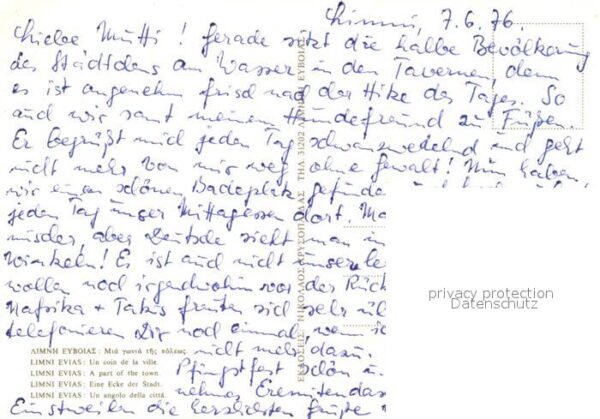 Limni, 7.6.76.
Liebe Mutti! Gerade sitzt die halbe Bevölkerung
des Städtchens am Wasser in den Tavernen, denn
es ist angenehm frisch nach der Hitze des Tages. So
auch wir samt meinem Hundefreund zu Füßen.
Er begrüßt mich jeden Tag schwanzwedelnd und geht
nicht mehr von mir weg ohne Gewalt! Nun haben
wir einen schönen Badeplatz gefunden
jeden Tag unser Mittagessen dort.
aber Deutsche sieht man in
Winkeln! Es ist auch nicht unser
wollen noch irgendwohin vor der
Nafsika + Takis freuten sich sehr
telefonieren Dir noch einmal, wenn
nicht mehr dazu.
Pfingstfest schön
Einstweilen die herzlichsten Grüße
ΛΙΜΝΗ ΕΥΒΟΙΑΣ: Μιά γωνιά τῆς πόλεως.
LIMNI EVIAS: Un coin de la ville.
LIMNI EVIAS: A part of the town.
LIMNI EVIAS: Eine Ecke der Stadt.
LIMNI EVIAS: Un angolo della città.
ΕΚΔΟΣΕΙΣ ΝΙΚΟΛΑΟΣ ΧΡΥΣΟΠΟΥΛΑΣ ΤΗΛ 31202 ΛΙΜΝΗ ΕΥΒΟΙΑΣ
privacy protection
Datenschutz